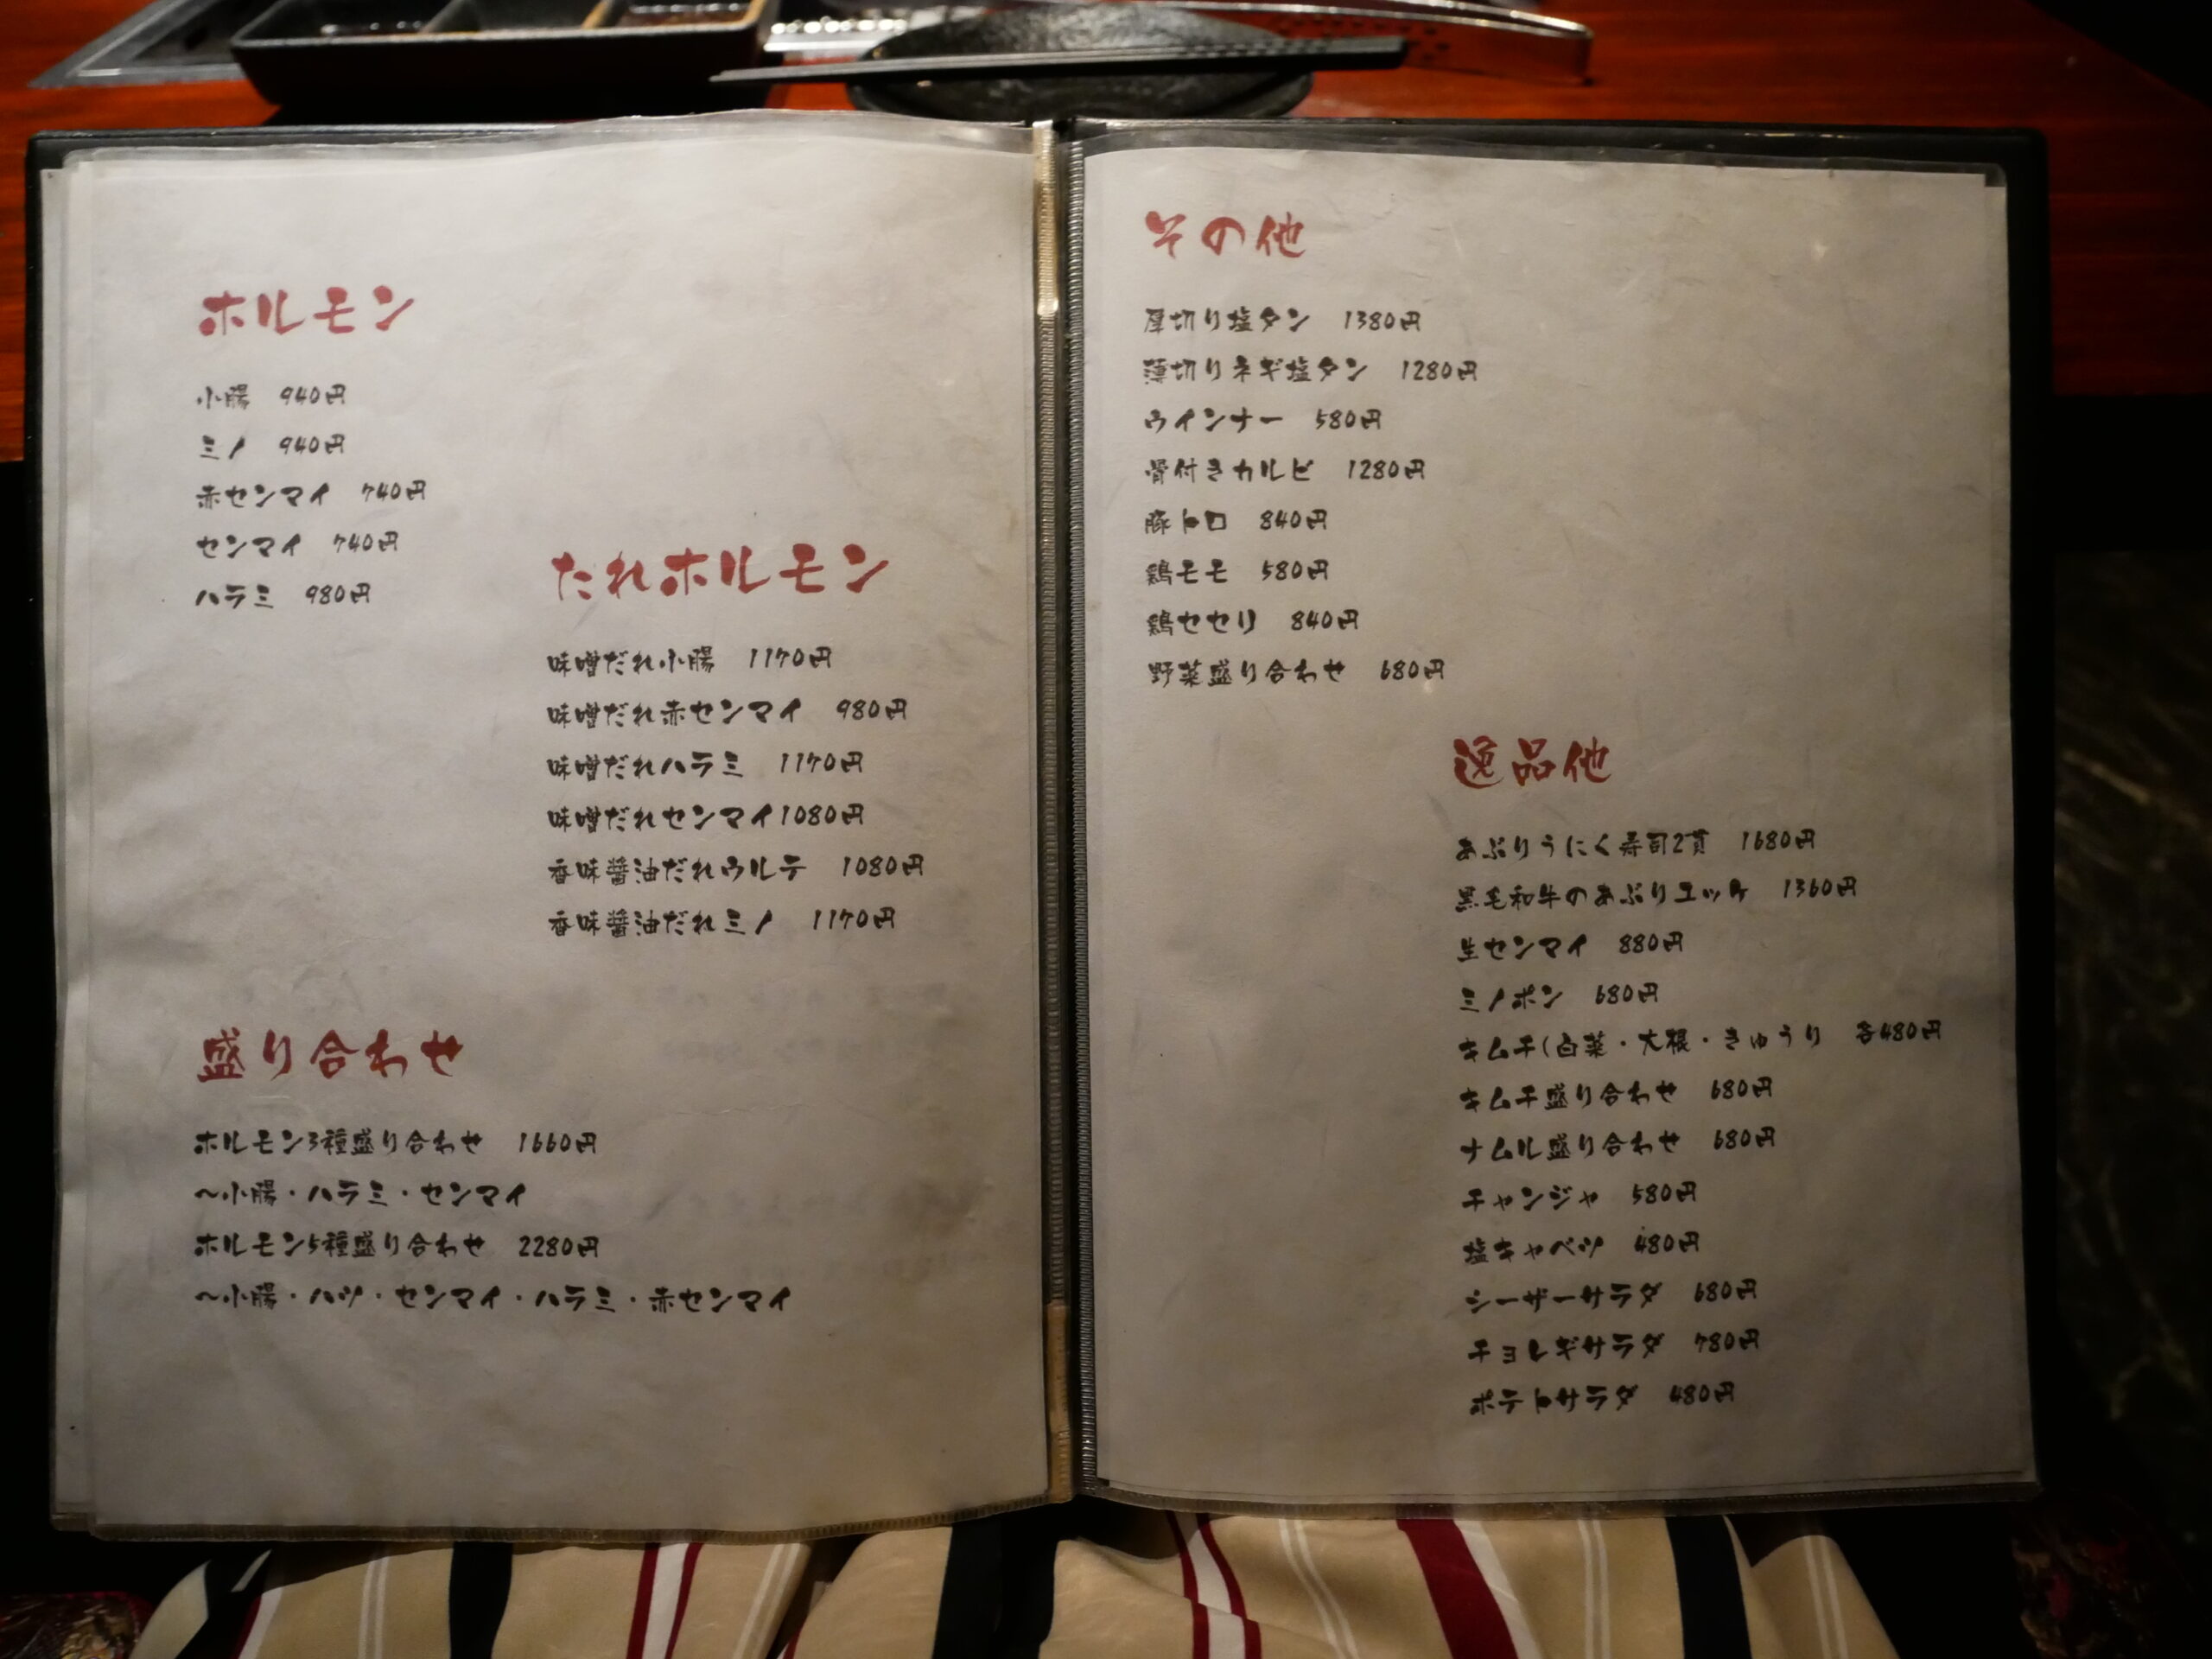 ホルモン
小腸 940円
ミノ 940円
赤センマイ 740円
センマイ 740円
ハラミ 980円
たれホルモン
味噌だれ小腸 1170円
味噌だれ赤センマイ 980円
味噌だれハラミ 1170円
味噌だれセンマイ1080円
香味醤油だれウルテ 1080円
香味醤油だれミノ 1170円
盛り合わせ
ホルモン3種盛り合わせ 1660円
〜小腸・ハラミ・センマイ
ホルモン5種盛り合わせ 2280円
〜小腸・ハツ・センマイ・ハラミ・赤センマイ
その他
厚切り塩タン 1380円
薄切りネギ塩タン 1280円
ウインナー 580円
骨付きカルビ 1280円
豚トロ 840円
鶏モモ 580円
鶏セセリ 840円
野菜盛り合わせ 680円
逸品他
あぶりうにく寿司2貫 1680円
黒毛和牛のあぶりユッケ 1360円
生センマイ 880円
ミノポン 680円
キムチ(白菜・大根・きゅうり 各480円
キムチ盛り合わせ 680円
ナムル盛り合わせ 680円
チャンジャ 580円
塩キャベツ 480円
シーザーサラダ 680円
チョレギサラダ 780円
ポテトサラダ 480円